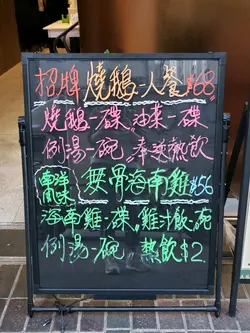 招牌燒鵝一人餐$68
燒鵝一碟。油菜一碟
例湯一碗。奉送熱飲
南洋風味 無骨海南雞$56
海南雞一碟。雞汁飯一碗
例湯一碗 熱飲$2